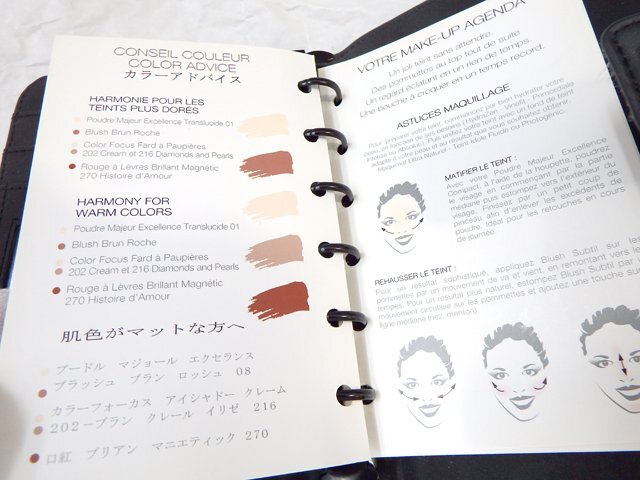 CONSEIL COULEUR
COLOR ADVICE
カラーアドバイス
HARMONIE POUR LES
TEINTS PLUS DORÉS
Poudre Majeur Excellence Translucide 01
Blush Brun Roche
Color Focus Fard à Paupières
202 Cream et 216 Diamonds and Pearls
Rouge à Lèvres Brillant Magnétic
270 Histoire d'Amour
HARMONY FOR
WARM COLORS
Poudre Majeur Excellence Translucide 01
Blush Brun Roche
Color Focus Fard à Paupières
202 Cream et 216 Diamonds and Pearls
Rouge à Lèvres Brillant Magnétic
270 Histoire d'Amour
肌色がマットな方へ
プードル マジョール エクセランス
ブラッシュ ブラン ロッシュ 08
カラーフォーカス アイシャドー クレーム
202－ブラン クレール イリゼ 216
口紅 ブリアン マニエティック 270
VOTRE MAKE-UP AGENDA
Un joli teint sans attendre.
Des pommettes au top tout de suite
Un regard éclatant en un rien de temps.
Une bouche à croquer en un temps record.
ASTUCES MAQUILLAGE
Pour préparer votre teint, commencez par bien hydrater votre
peau, en fonction de ses besoins (HydraZen - Vinéfit - Primordiale
Intense ou Absolue). Puis unifiez votre teint avec un fond de teint
adapté à votre peau et au résultat que vous souhaitez obtenir.
Maquimat Ultra Naturel - Teint Idole Fluide ou Photogénic.
MATIFIER LE TEINT :
Avec votre Poudre Majeur Excellence
Compact, à l'aide de la houpette, poudrez
le visage en commençant par la partie
médiane puis estompez vers l'extérieur du
visage. Finissez par un petit coup de
pinceau afin d'enlever les excédents de
poudre. Idéal pour les retouches en cours
de journée.
REHAUSSER LE TEINT :
Pour un résultat sophistiqué, appliquez Blush Subtil sur les
pommettes par un mouvement de va et vient, en remontant vers les
tempes. Pour un résultat plus naturel, estompez Blush Subtil par
mouvement circulaire sur les pommettes et ajoutez une touche sur
ligne médiane (nez, menton).